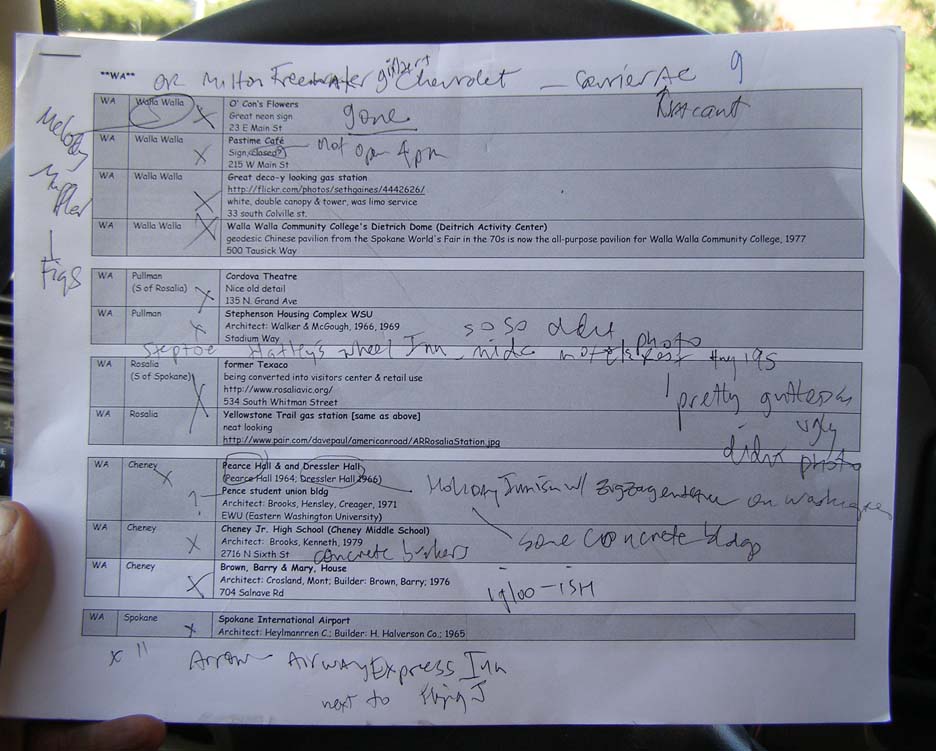 **WA** OR Milton Freewater Gilbert Chevrolet – Carrier AC 9
vacant
Melody
Muffler
Figs
WA Walla Walla X O' Con's Flowers
Great neon sign gone
23 E Main St
WA Walla Walla X Pastime Café
Sign, closed? not open 4pm
215 W Main St
WA Walla Walla X Great deco-y looking gas station
http://flickr.com/photos/sethgaines/4442626/
white, double canopy & tower, was limo service
33 south Colville st.
WA Walla Walla X Walla Walla Community College's Dietrich Dome (Deitrich Activity Center)
geodesic Chinese pavilion from the Spokane World's Fair in the 70s is now the all-purpose pavilion for Walla Walla Community College, 1977
500 Tausick Way
WA Pullman X Cordova Theatre
(S of Rosalia) Nice old detail
135 N. Grand Ave
WA Pullman X Stephenson Housing Complex WSU
Architect: Walker & McGough, 1966, 1969 so so didnt photo
Stadium Way
Steptoe Wheel Inn Hwy 195
WA Rosalia X former Texaco
(S of Spokane) being converted into visitors center & retail use
http://www.rosaliavic.org/
534 South Whitman Street
pretty
WA Rosalia Yellowstone Trail gas station [same as above]
neat looking ugly
http://www.pair.com/davepaul/americanroad/ARRosaliaStation.jpg didnt photo
WA Cheney X Pearce Hall & and Dressler Hall
(Pearce Hall 1964; Dressler Hall 1966)
? Pence student union bldg
Architect: Brooks, Hensley, Creager, 1971
EWU (Eastern Washington University)
Holiday w/ zigzag on Washington
some concrete bldgs
WA Cheney X Cheney Jr. High School (Cheney Middle School)
Architect: Brooks, Kenneth, 1979
2716 N Sixth St concrete bunkers
WA Cheney X Brown, Barry & Mary, House
Architect: Crosland, Mont; Builder: Brown, Barry; 1976
704 Salnave Rd igloo-ISH
WA Spokane X Spokane International Airport
Architect: Heylmanrren C.; Builder: H. Halverson Co.; 1965
X " Arrow Airway Express Inn
next to Flying J